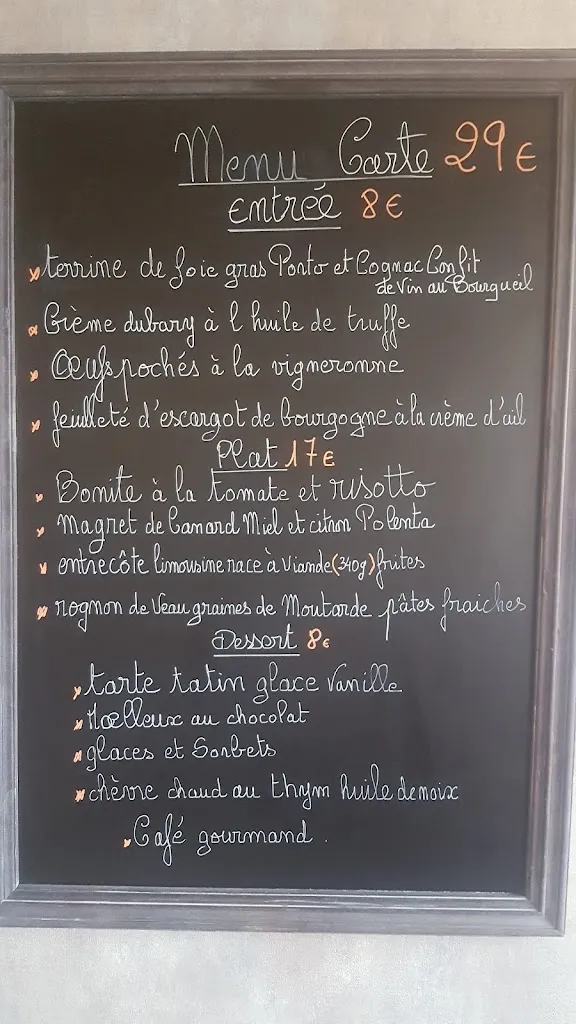 Menu Carte 29€
Entrée 8€
terrine de foie gras Porto et Cognac Confit
de Vin au Bourgueil
Crème dubary à l huile de truffe
Œufs pochés à la vigneronne
feuilleté d'escargot de bourgogne à la crème d'ail
Plat 17€
Bonite à la tomate et risotto
magret de Canard Miel et citron Polenta
entrecôte limousine race à Viande (340g) frites
rognon de Veau graines de Moutarde pâtes fraiches
Dessert 8€
tarte tatin glace Vanille
Moelleux au chocolat
glaces et Sorbets
chèvre chaud au thym huile de noix
Café gourmand.